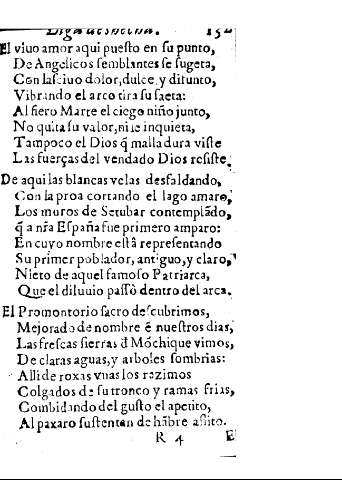 Liga deshecha. 132
El viuo amor aqui puesto en su punto,
De Angelicos semblantes se sugeta,
Con lasciuo dolor, dulce y difunto,
Vibrando el arco tira su saeta:
Al fiero Marte el ciego niño junto,
No quita su valor, ni le inquieta,
Tampoco el Dios q̃ malla dura viste
Las fuerças del vendado Dios resiste.
De aqui las blancas velas desfaldando,
Con la proa cortando el lago amaro,
Los muros de Setubar contemplãdo,
q̃ a nr̃a España fue primero amparo:
En cuyo nombre està representando
Su primer poblador, antiguo, y claro,
Nieto de aquel famoso Patriarca,
Que el diluuio passò dentro del arca.
El Promontorio sacro descubrimos,
Mejorado de nombre ẽ nuestros dias,
Las frescas sierras đ Mõchique vimos,
De claras aguas, y arboles sombrias:
Alli de roxas vuas los razimos
Colgados de su tronco y ramas frias,
Combidando del gusto el apetito,
Al paxaro sustentan de hãbre aflito.
R 4 E